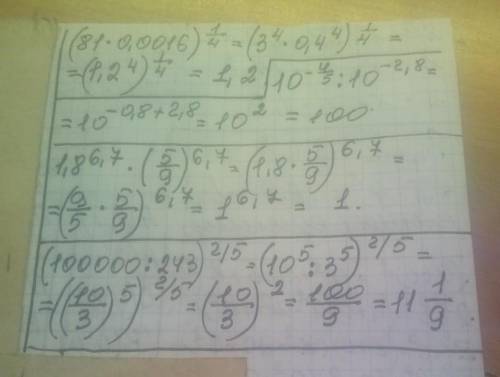 (81·0,0016)^(1/4) = (3⁴·0,4⁴)^(1/4) =
= (1,2⁴)^(1/4) = 1,2 | 10^(-4/5) : 10^(-2,8) =
= 10^(-0,8+2,8) = 10² = 100.
1,8^(6,7) · (5/9)^(6,7) = (1,8 · 5/9)^(6,7) =
= (9/5 · 5/9)^(6,7) = 1^(6,7) = 1.
(100000 : 243)^(2/5) = (10⁵ : 3⁵)^(2/5) =
= ((10/3)⁵)^(2/5) = (10/3)² = 100/9 = 11 1/9